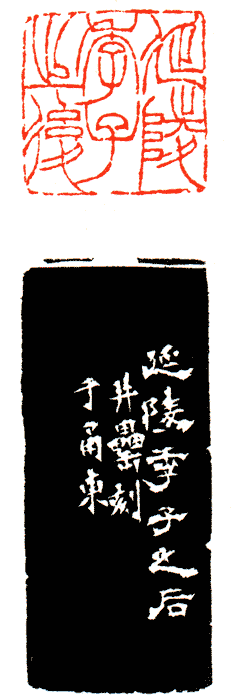 延陵
季子
之後
延陵季子之后
井罍刻
于甬東